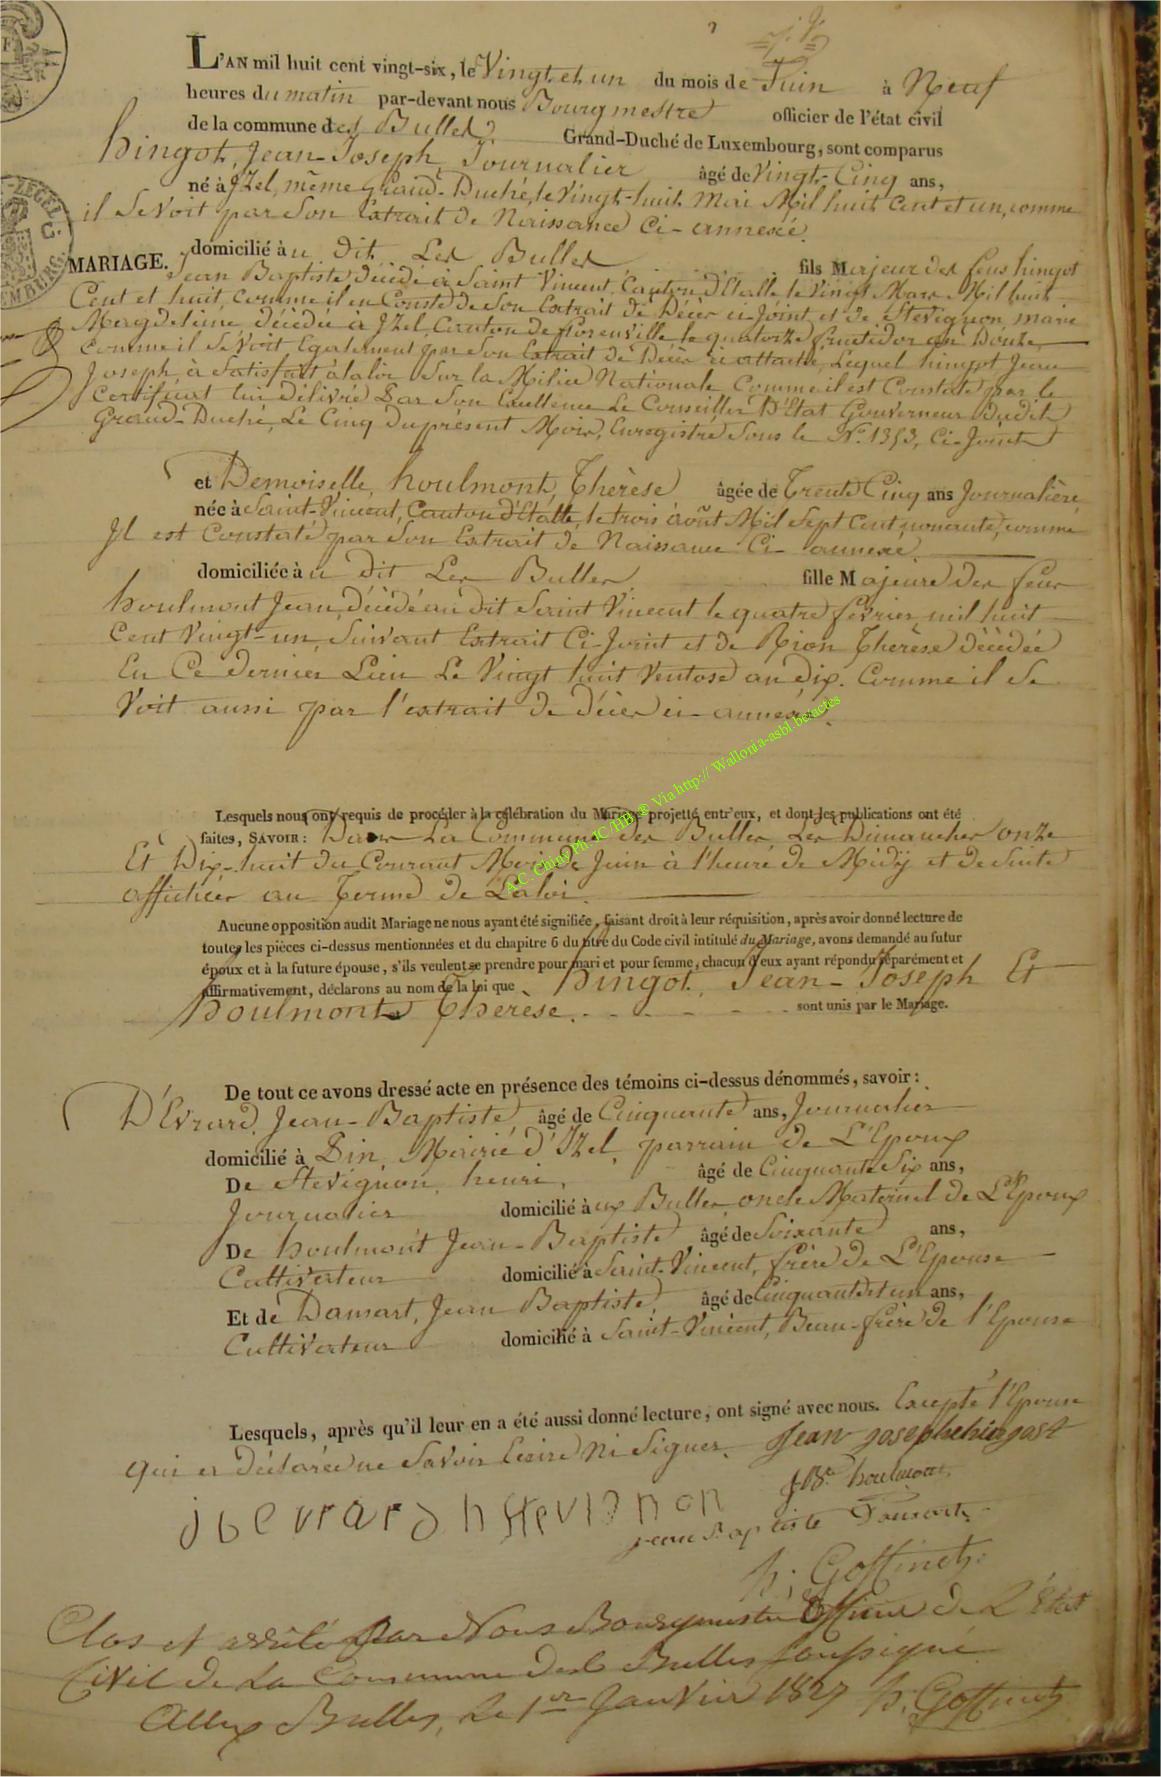 L'AN mil huit cent vingt-six, le Vingt et un du mois de Juin à Neuf
heures du matin par-devant nous Bourgmestre officier de l'état civil
de la commune des Bulles Grand-Duché de Luxembourg, sont comparus
hingot, Jean-Joseph, Journalier âgé de Vingt-Cinq ans,
né à Jzel, même Grand-Duché, le Vingt-huit Mai Mil huit Cent et un, comme
il se Voit par son Extrait de Naissance Ci-annexée.
MARIAGE. domicilié àu dit Les Bulles fils Majeur des feus hingot
Jean Baptiste décédé à Saint Vincent, Canton d'Etalle, le Vingt Mars Mil huit
Cent et huit, comme il en Conste de son Extrait de Décès ci-Joint et de Stévignon, marie
Magdeleine, décédée à Jzel, Canton de florenville le quatorze fructidor an Douze
Comme il se Voit Egalement par son Extrait de Décès ci attaché, Lequel hingot Jean
Joseph à Satisfait à la loi sur la Milice Nationale Comme il est Constaté par le
Certificat lui Délivré Par Son Excellence Le Conseiller D'Etat Gouverneur Dudit
Grand-Duché, Le Cinq du présent Mois, Enregistré sous le No. 1353, Ci-Joint
et Demoiselle, houlmont, Thérèse âgée de Trente Cinq ans Journalière
née à Saint-Vincent, Canton d'Etalle, le trois août Mil Sept Cent nonante, comme
Jl est Constaté par son Extrait de Naissance Ci-annexé
domiciliée àu dit Les Bulles fille Majeure des feus
houlmont Jean, Décédé au dit Saint Vincent le quatre février mil huit
Cent Vingt-un, Suivant Extrait Ci-Joint et de Rion Thérèse décédée
En Ce dernier Lieu Le Vingt huit Ventose an dix. Comme il se
Voit aussi par l'extrait de décès ci-annexé.
Lesquels nous ont requis de procéder à la célébration du Mariage projetté entr'eux, et dont les publications ont été
faites, SAVOIR : Dans La Commune des Bulles Les Dimanches onze
Et Dix-huit du Courant Mois de Juin à l'heure de Midÿ et de Suite
affichées au Terme de La loi.
Aucune opposition audit Mariage ne nous ayant été signifiée, faisant droit à leur réquisition, après avoir donné lecture de
toutes les pièces ci-dessus mentionnées et du chapitre 6 du titre du Code civil intitulé du Mariage, avons demandé au futur
époux et à la future épouse, s'ils veulent se prendre pour mari et pour femme, chacun d'eux ayant répondu séparément et
affirmativement, déclarons au nom de la loi que hingot, Jean-Joseph Et
houlmont Thérèse. sont unis par le Mariage.
De tout ce avons dressé acte en présence des témoins ci-dessus dénommés, savoir :
D'Evrard, Jean-Baptiste, âgé de Cinquante ans, Journalier
domicilié à Pin, Mairie d'Izel, parrain de L'Epoux
De Stévignon, henri, âgé de Cinquante Six ans,
Journalier domicilié àux Bulles, oncle Maternel de L'Epoux
De houlmont Jean-Baptiste âgé de Soixante ans,
Cultivateur domicilié à Saint-Vincent, frère de L'Epouse
Et de Damsart, Jean Baptiste, âgé de Cinquante et un ans,
Cultivateur domicilié à Saint-Vincent, Beau-frère de l'Epouse
Lesquels, après qu'il leur en a été aussi donné lecture, ont signé avec nous. Excepté l'Epouse
qui a déclarée ne Savoir Ecrire Ni Signer. Jean joseph hingost
J Bte houlmont
jb evrard h stevignon
jean Baptiste Damsart
h; Goffinet
Clos et arrêté par Nous Bourgmestre Officier de L'état
Civil de La Commune des Bulles soussigné
Aux Bulles, Le 1er Janvier 1827 h; Goffinet
A.C. Chiny Ph. JC/HB ® Via http:// Wallonia-asbl.be/actes